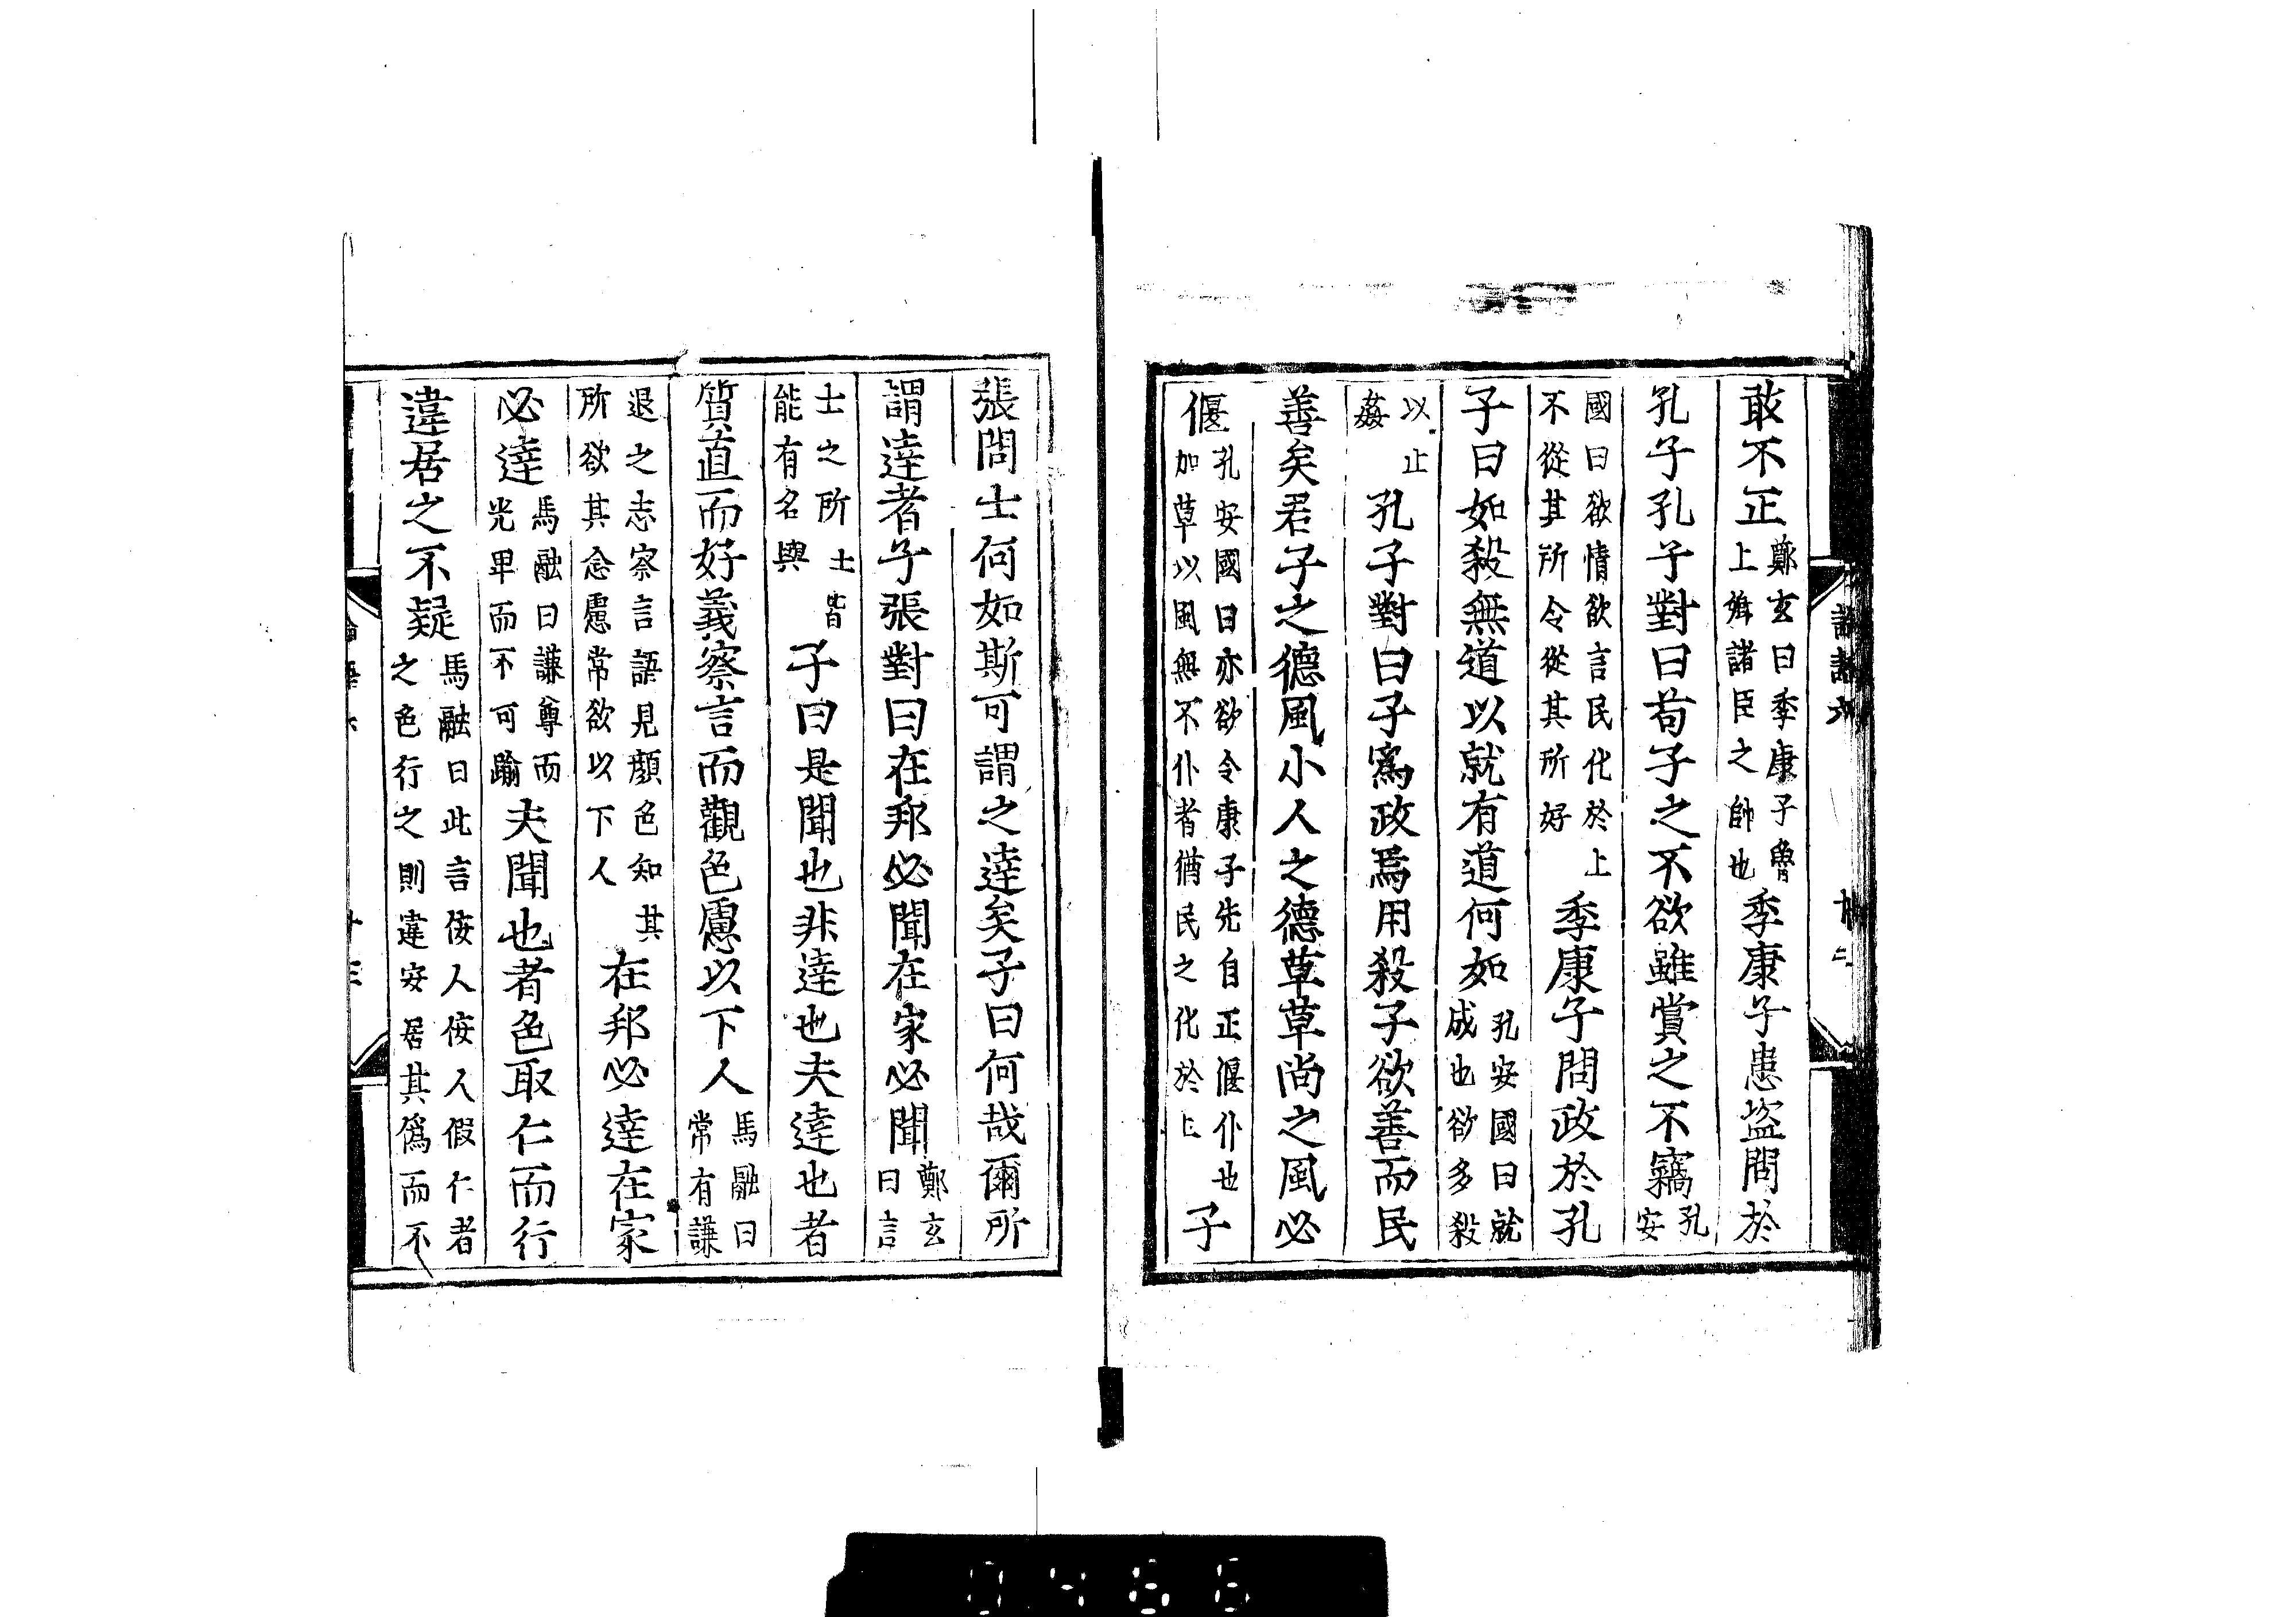 論語六 十二
敢不正鄭玄曰季康子魯上卿諸臣之帥也季康子患盜問於
孔子孔子對曰苟子之不欲雖賞之不竊孔安
國曰欲情欲言民化於上不從其所令從其所好季康子問政於孔
子曰如殺無道以就有道何如孔安國曰就成也欲多殺
以止姦孔子對曰子爲政焉用殺子欲善而民
善矣君子之德風小人之德草草尚之風必
偃孔安國曰亦欲令康子先自正偃仆也加草以風無不仆者猶民之化於上子
張問士何如斯可謂之達矣子曰何哉爾所
謂達者子張對曰在邦必聞在家必聞鄭玄曰言
士之所士皆能有名與子曰是聞也非達也夫達也者
質直而好義察言而觀色慮以下人馬融曰常有謙
退之志察言語見顏色知其所欲其念慮常欲以下人在邦必達在家
必達馬融曰謙尊而光卑而不可踰夫聞也者色取仁而行
違居之不疑馬融曰此言佞人佞人假仁者之色行之則違安居其僞而不